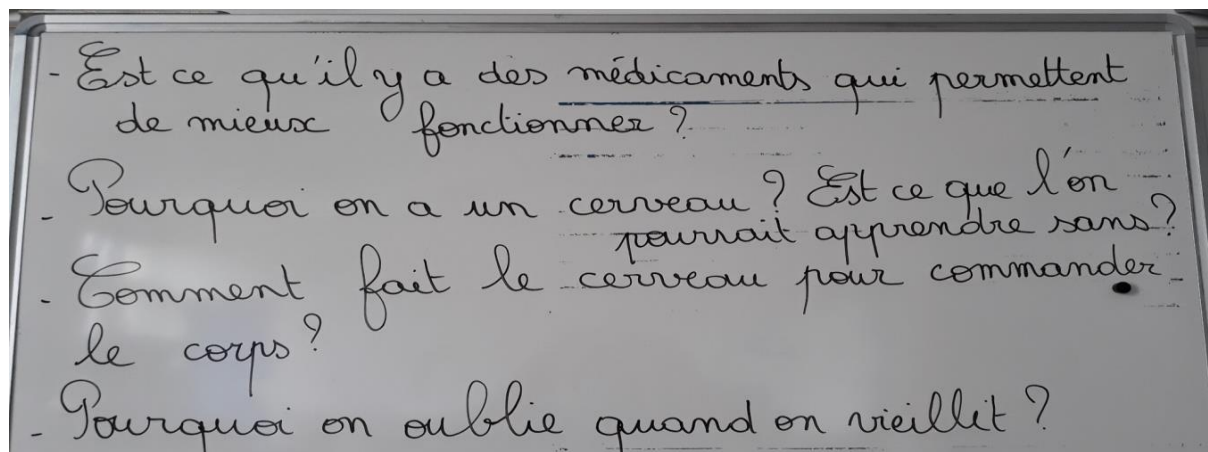 - Est ce qu'il y a des médicaments qui permettent
de mieux fonctionner ?
- Pourquoi on a un cerveau ? Est ce que l'on
pourrait apprendre sans ?
- Comment fait le cerveau pour commander
le corps ?
- Pourquoi on oublie quand on vieillit ?